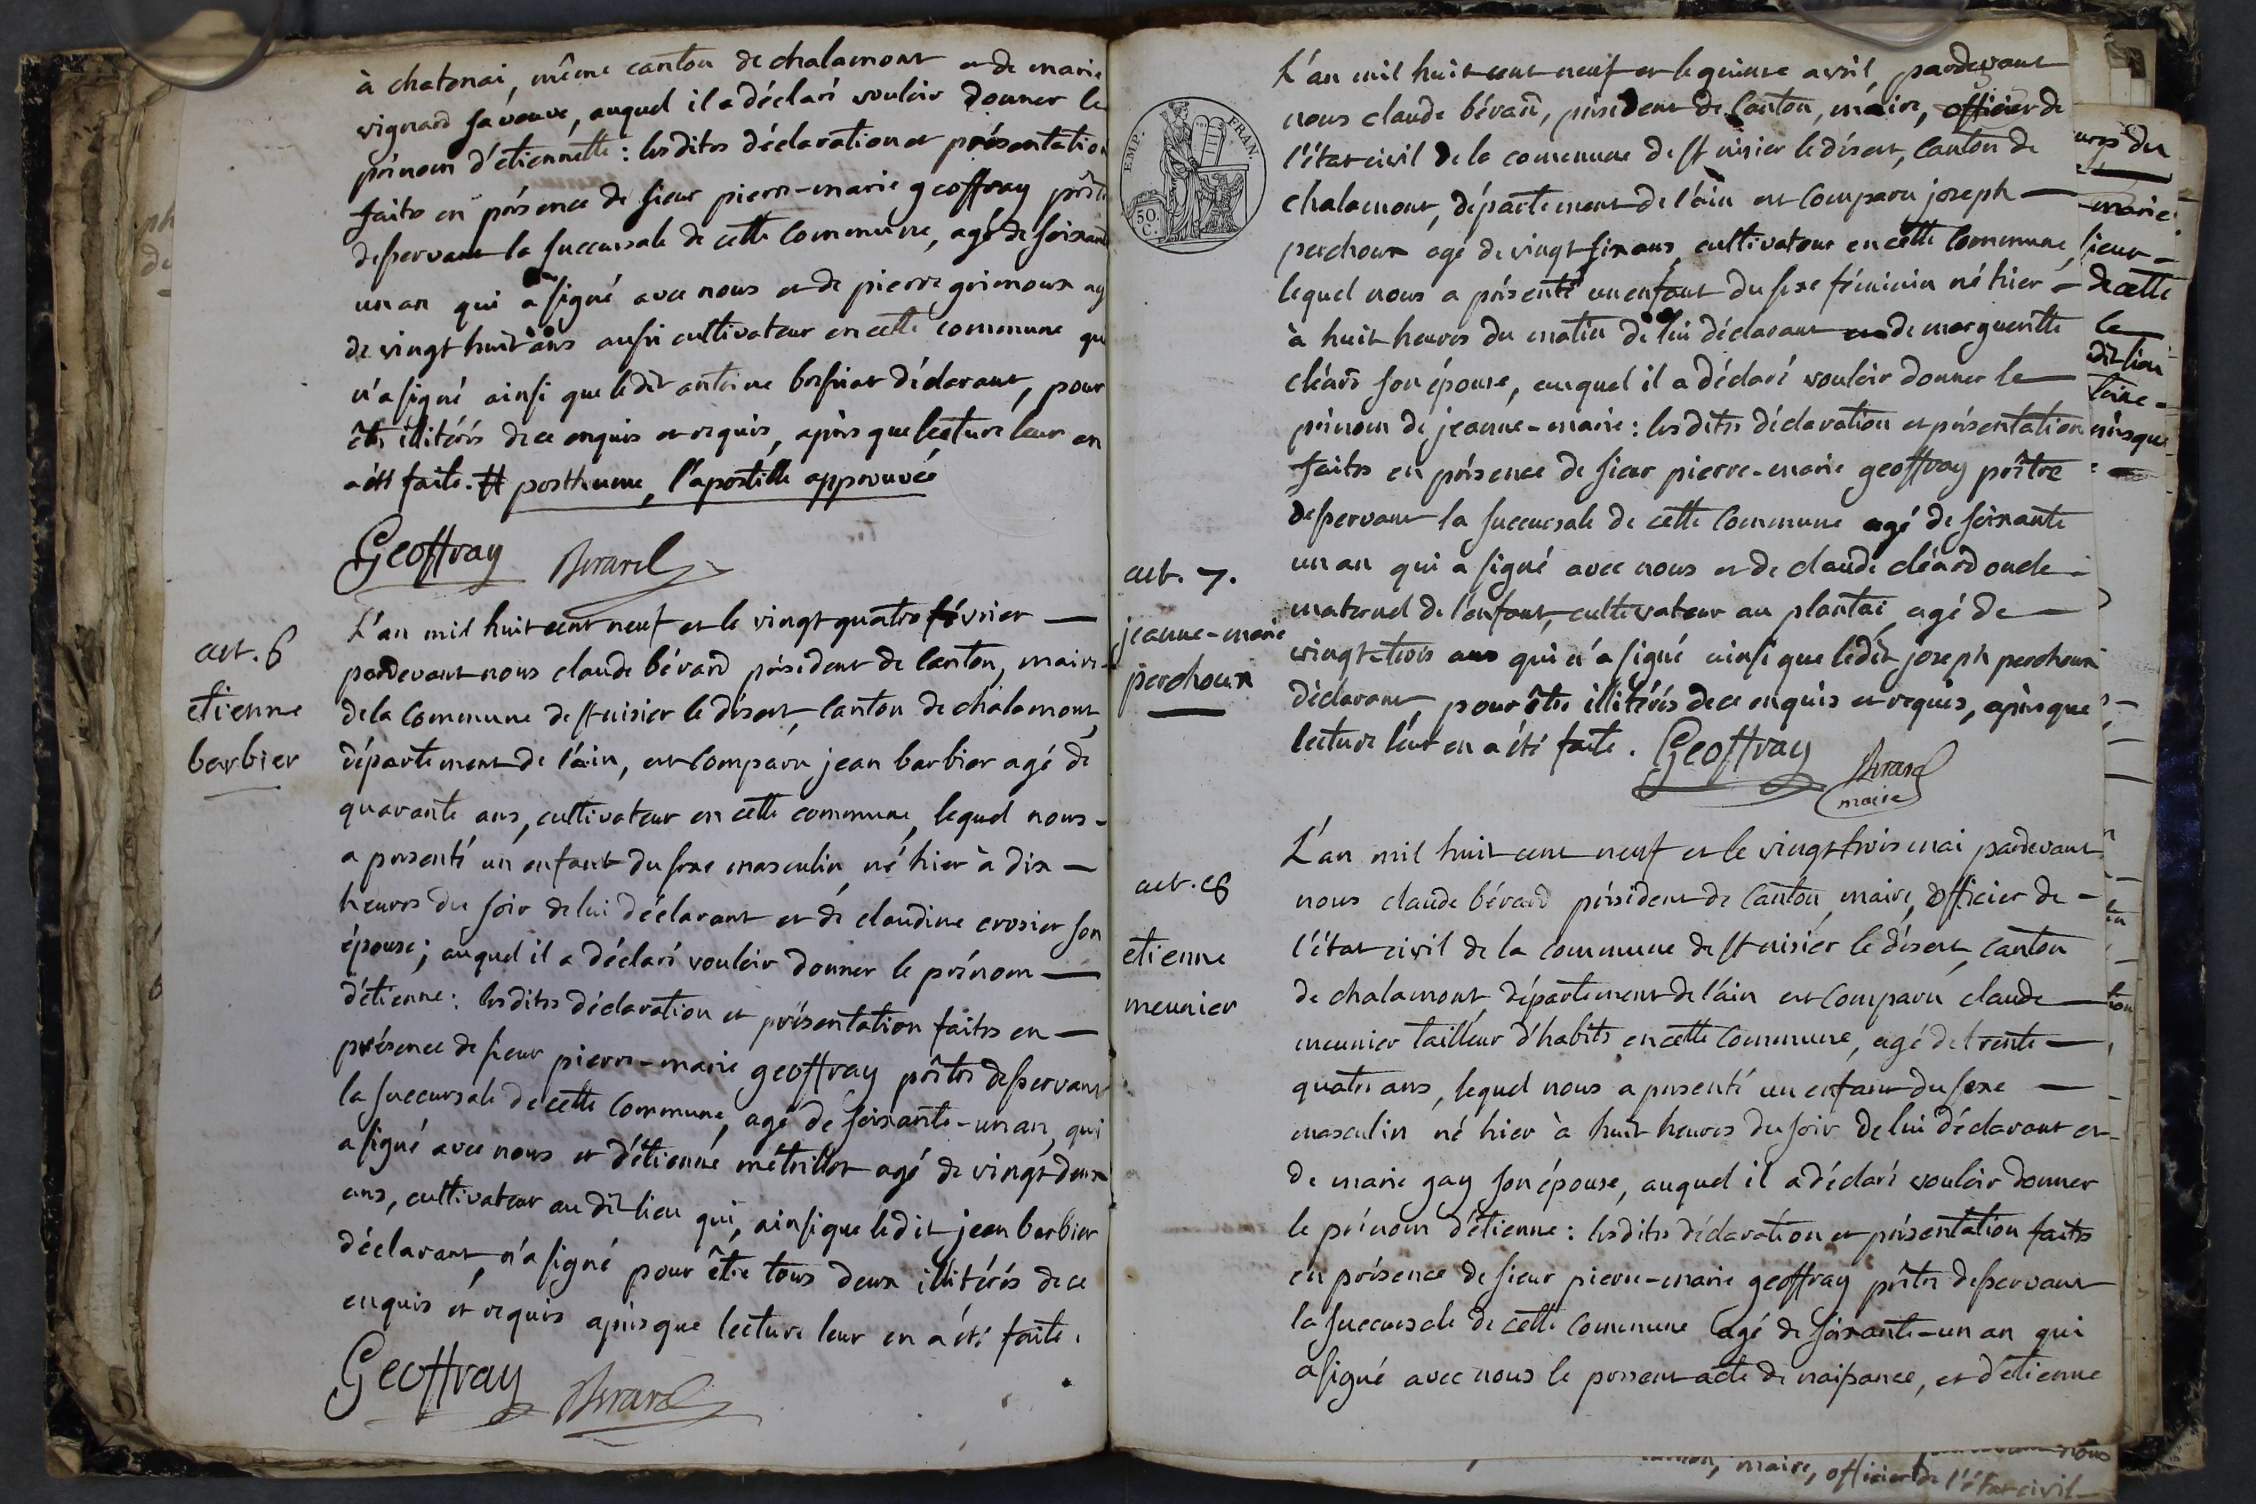 à chatenai, même canton de chalamont et de marie
vignard sa veuve, auquel il a déclaré vouloir donner le
prénom d'étiennette : lesdites déclaration et présentation
faites en présence de sieur pierre-marie geoffray prêtre
desservant la succursale de cette commune, agé de soixante
un an qui a signé avec nous et de pierre grimoux agé
de vingt huit ans aussi cultivateur en cette commune qui
n'a signé ainsi que ledit antoine déclarant, pour
être illitérés de ce enquis et requis, après que lecture leur en
a été faite. # posthume, l'apostille approuvée
Geoffray Bérard
art. 6
etienne
barbier
L'an mil huit cent neuf et le vingt quatre février —
pardevant nous claude bérard président de canton, maire
de la commune de st nisier le désert, canton de chalamont,
département de l'ain, est comparu jean barbier agé de
quarante ans, cultivateur en cette commune, lequel nous -
a présenté un enfant du sexe masculin né hier à dix —
heures du soir de lui déclarant et de claudine crosier son
épouse ; auquel il a déclaré vouloir donner le prénom —
d'étienne : lesdites déclaration et présentation faites en —
présence de sieur pierre-marie geoffray prêtre desservant
la succursale de cette commune, agé de soixante-un an, qui
a signé avec nous et d'étienne métrillot agé de vingt deux
ans, cultivateur audit lieu qui, ainsi que ledit jean barbier
déclarant, n'a signé pour être tous deux illitérés de ce
enquis et requis après que lecture leur en a été faite.
Geoffray Bérard
EMP. FRAN.
50. C.
L'an mil huit cent neuf et le quinze avril, pardevant
nous claude bérard, président de canton, maire, officier de
l'état civil de la commune de st nisier le désert, canton de
chalamont, département de l'ain est comparu joseph —
perchoux agé de vingt six ans, cultivateur en cette commune,
lequel nous a présenté un enfant du sexe féminin né hier -
à huit heures du matin de lui déclarant et de marguerite
cléard son épouse, auquel il a déclaré vouloir donner le —
prénom de jeanne-marie : lesdites déclaration et présentation
faites en présence de sieur pierre-marie geoffray prêtre
desservant la succursale de cette commune agé de soixante
un an qui a signé avec nous et de claude cléard oncle -
maternel de l'enfant, cultivateur au plantai, agé de —
vingt-trois ans qui n'a signé ainsi que ledit joseph perchoux
déclarant, pour être illitérés de ce enquis et requis, après que
lecture leur en a été faite. Geoffray Bérard
maire
art. 7.
jeanne-marie
perchoux
L'an mil huit cent neuf et le vingt trois mai pardevant
nous claude bérard président de canton, maire, officier de -
l'état civil de la commune de st nisier le désert, canton
de chalamont, département de l'ain est comparu claude —
meunier tailleur d'habits en cette commune, agé de trente —
quatre ans, lequel nous a présenté un enfant du sexe —
masculin né hier à huit heures du soir de lui déclarant et -
de marie gay son épouse, auquel il a déclaré vouloir donner
le prénom d'étienne : lesdites déclaration et présentation faites
en présence de sieur pierre-marie geoffray prêtre desservant
la succursale de cette commune agé de soixante-un an qui
a signé avec nous le présent acte de naissance, et d'étienne
art. 8
etienne
meunier
marie
sieur -
de cette
le
maire, officier de l'état civil